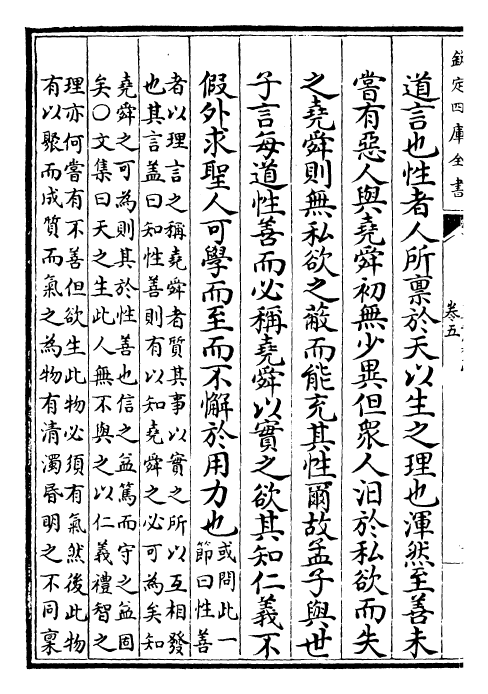 欽定四庫全書
卷五
道言也性者人所禀於天以生之理也渾然至善未
嘗有惡人與堯舜初無少異但衆人汩於私欲而失
之堯舜則無私欲之蔽而能充其性爾故孟子與世
子言每道性善而必稱堯舜以實之欲其知仁義不
假外求聖人可學而至而不懈於用力也
或問此一
節曰性善
者以理言之稱堯舜者質其事以實之所以互相發
也其言盖曰知性善則有以知堯舜之必可為矣知
堯舜之可為則其於性善也信之益篤而守之益固
矣○文集曰天之生此人無不與之以仁義禮智之
理亦何嘗有不善但欲生此物必須有氣然後此物
有以聚而成質而氣之為物有清濁昏明之不同稟